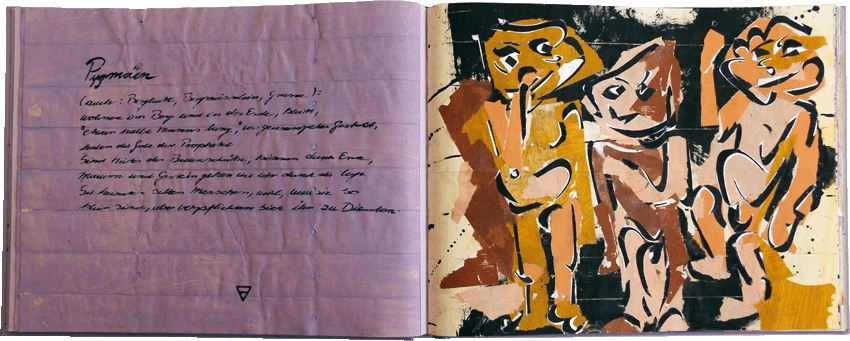 Pygmäen
(auch: Bergleute, Bergmännlein, Gnome):
wohnen im Berg und in der Erde, klein,
"etwan halbe Manns lang", von Gestalt,
haben die Gabe der Prophetie
Sind Hüter der Bodenschätze, können durch Erze,
Mauern und Gestein gehen wie wir durch die Luft
Sie Menschen, weil sie so
klein sind, aber verpflichten sich ihm zu Diensten.